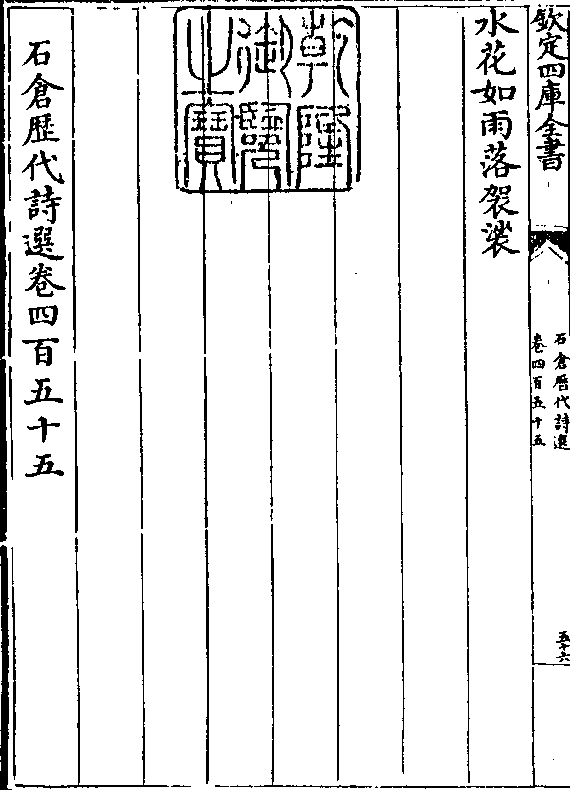 欽定四庫全書
石倉歴代詩選
卷四百五十五
五十六
水花如雨落袈裟
乾隆
御覽
之寶
石倉歴代詩選卷四百五十五